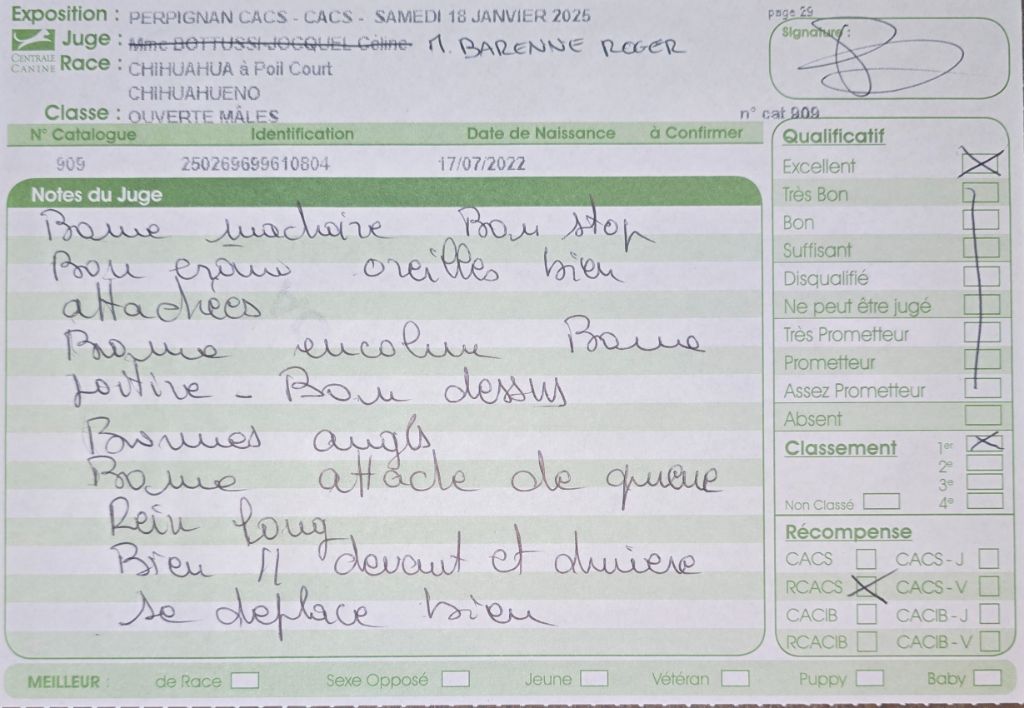 Exposition : PERPIGNAN CACS - CACS - SAMEDI 18 JANVIER 2025
page 29
Juge : Mme BOTTUSSI-JOCQUEL Céline M. BARENNE ROGER
Signature :
CENTRALE CANINE
Race : CHIHUAHUA à Poil Court
CHIHUAHUENO
Classe : OUVERTE MÂLES
n° cat 909
N° Catalogue Identification Date de Naissance à Confirmer
909 250269699610804 17/07/2022
Notes du Juge
Bonne machoire Bon stop
Bon crâne oreilles bien
attachées
Bonne encolure Bonne
poitire - Bon dessus
Bonnes angls
Bonne attache de queue
Rein long
Bien // devant et derriere
se deplace bien
Qualificatif
Excellent
Très Bon
Bon
Suffisant
Disqualifié
Ne peut être jugé
Très Prometteur
Prometteur
Assez Prometteur
Absent
Classement 1er
2e
3e
Non Classé 4e
Récompense
CACS CACS - J
RCACS CACS - V
CACIB CACIB - J
RCACIB CACIB - V
MEILLEUR : de Race Sexe Opposé Jeune Vétéran Puppy Baby